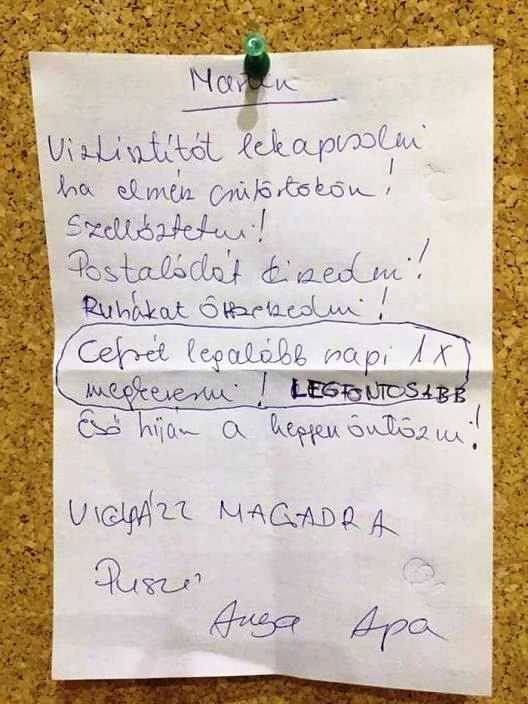 Martin
Víztisztítót lekapcsolni
ha elmész csütörtökön!
Szellőztetni!
Postaládát kiszedni!
Ruhákat összeszedni!
Cefrét legalább napi 1x
megkeverni! LEGFONTOSABB
Eső híján a hegyen öntözni!
VIGYÁZZ MAGADRA
Puszi
Anya Apa